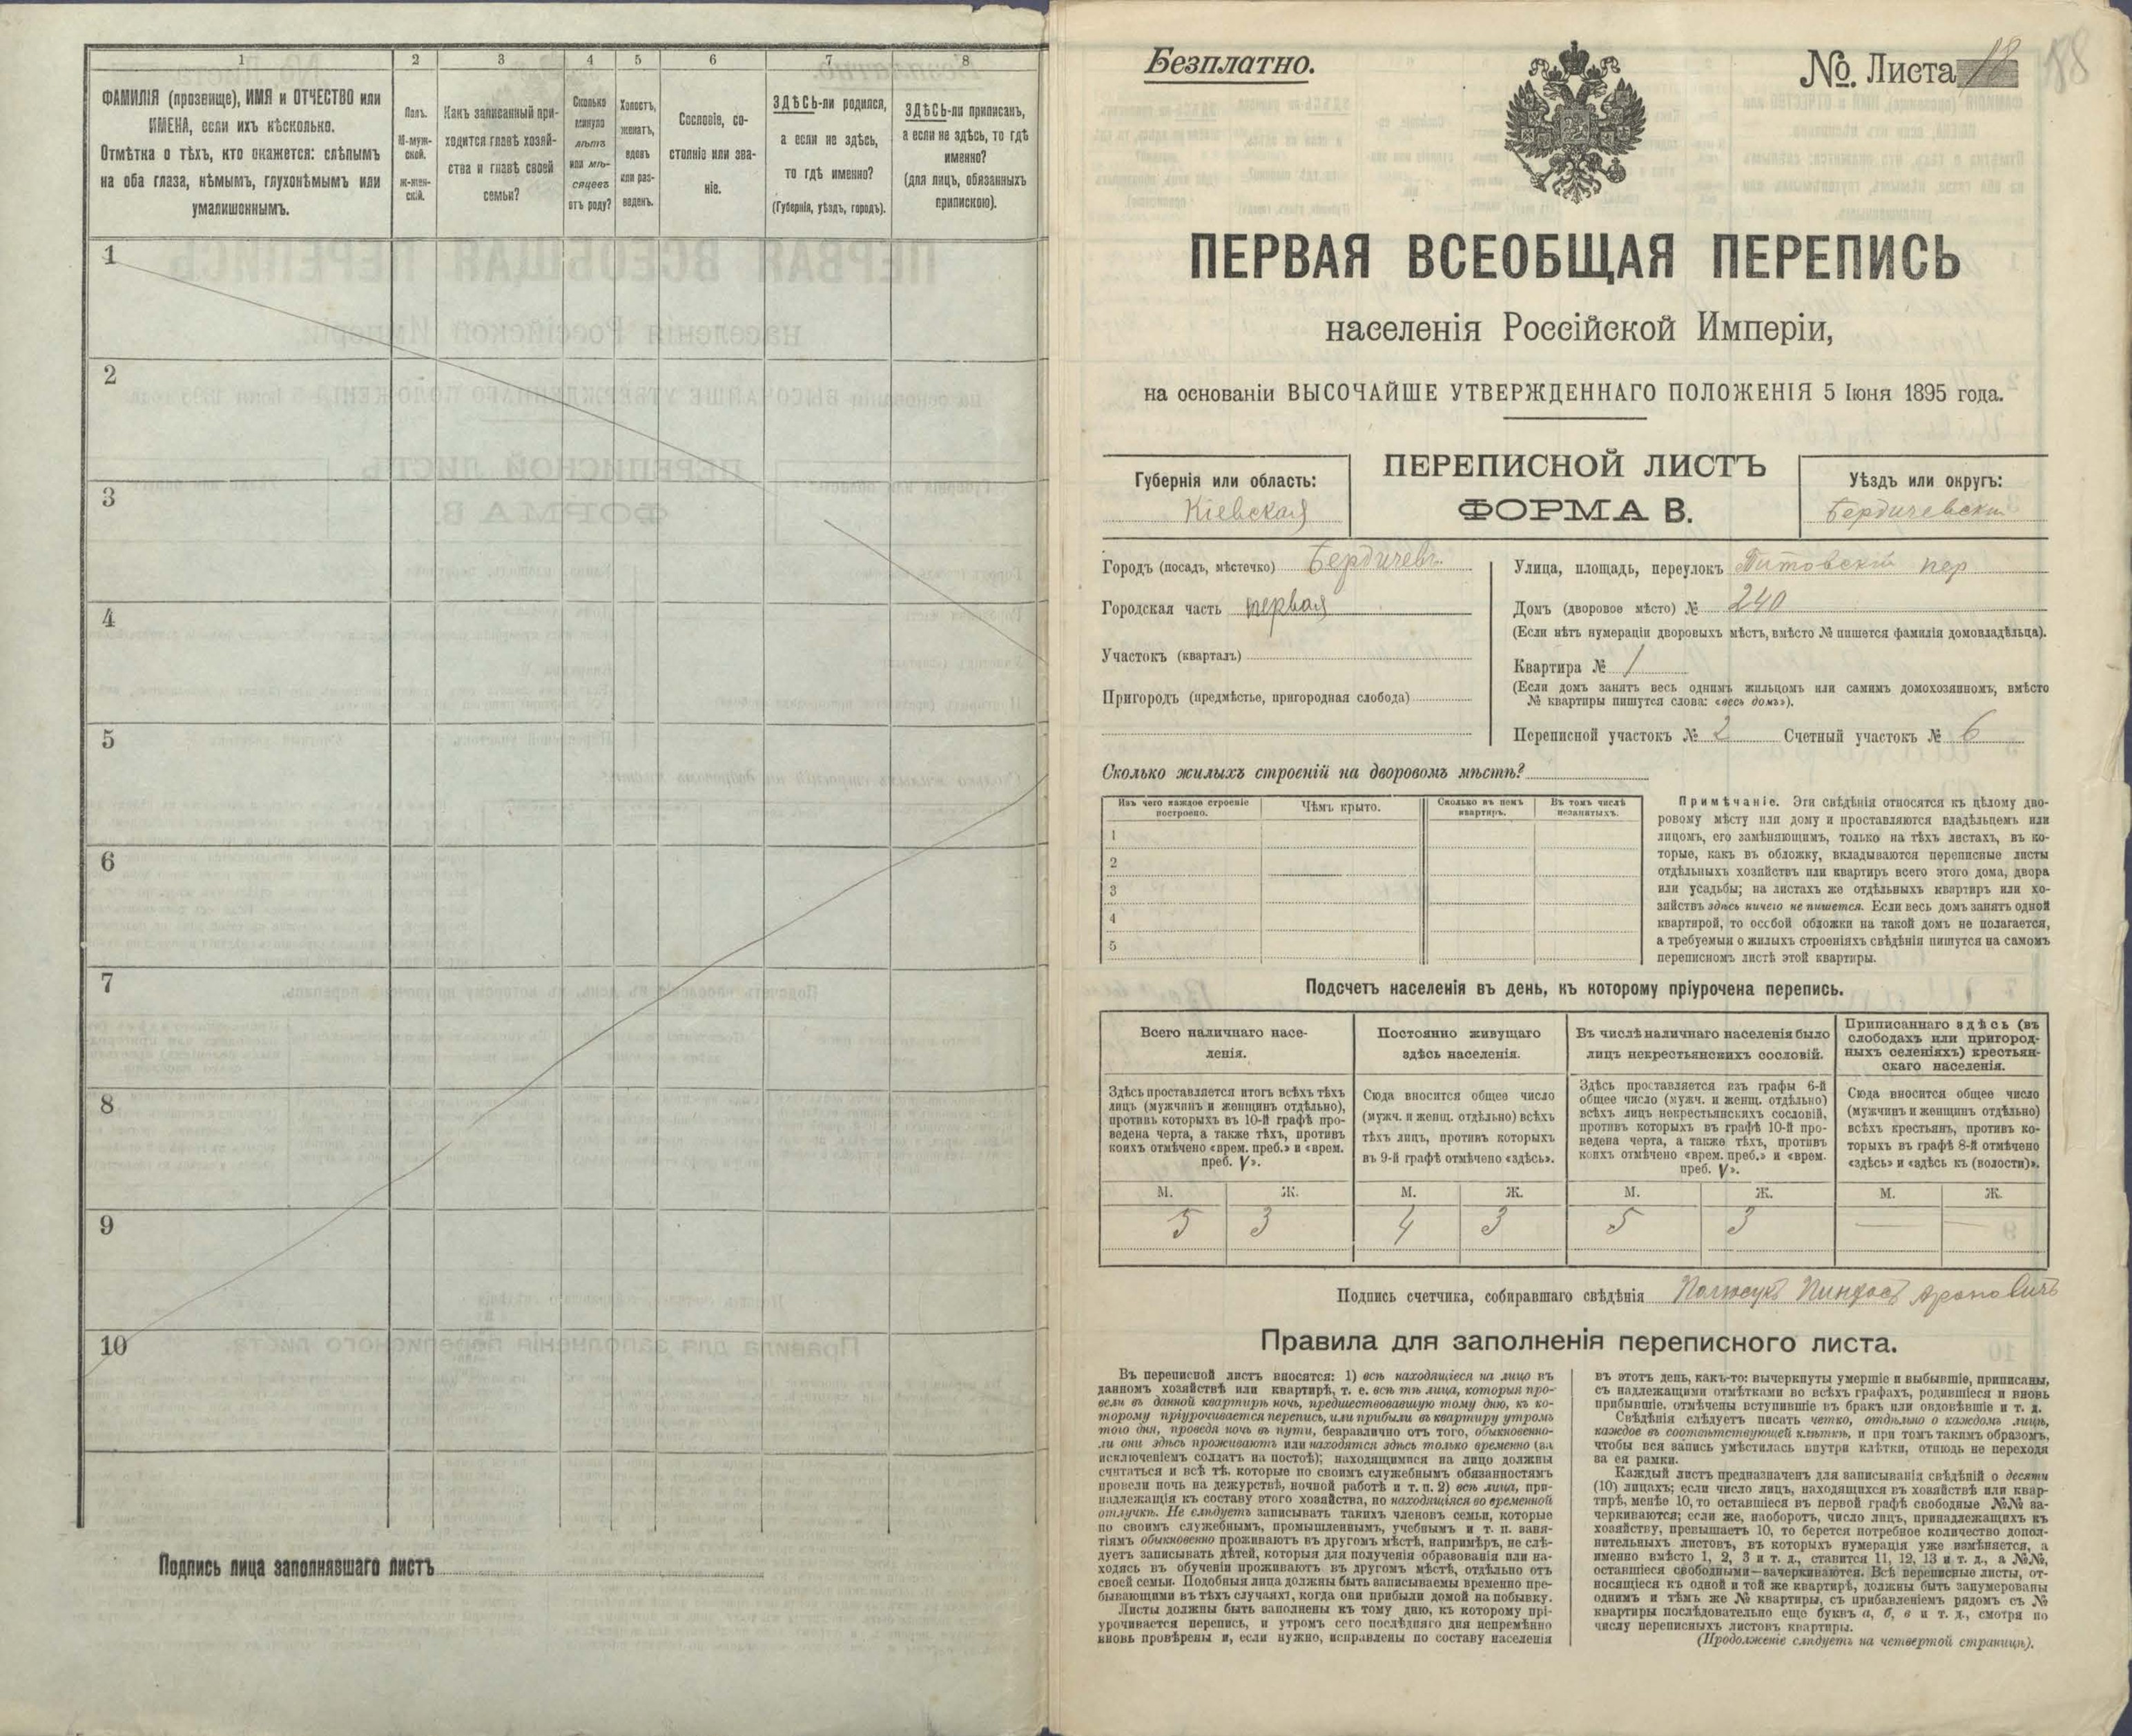 1
2
3
4
5
6
7
8
ФАМИЛІЯ (прозвище), ИМЯ и ОТЧЕСТВО или
ИМЕНА, если ихъ нѣсколько.
Отмѣтка о тѣхъ, кто окажется: слѣпымъ
на оба глаза, нѣмымъ, глухонѣмымъ или
умалишоннымъ.
Полъ.
М-муж-
ской.
Ж-жен-
скій.
Какъ записанный при-
ходится главѣ хозяй-
ства и главѣ своей
семьи?
Сколько
минуло
лѣтъ
или мѣ-
сяцевъ
отъ роду?
Холостъ,
женатъ,
вдовъ
или раз-
веденъ.
Сословіе, со-
стояніе или зва-
ніе.
ЗДѢСЬ-ли родился,
а если не здѣсь,
то гдѣ именно?
(Губернія, уѣздъ, городъ).
ЗДѢСЬ-ли приписанъ,
а если не здѣсь, то гдѣ
именно?
(для лицъ, обязанныхъ
припискою).
1
2
3
4
5
6
7
8
9
10
Подпись лица заполнявшаго листъ
Безплатно.
№ Листа 18
ПЕРВАЯ ВСЕОБЩАЯ ПЕРЕПИСЬ
населенія Россійской Имперіи,
на основаніи ВЫСОЧАЙШЕ УТВЕРЖДЕННАГО ПОЛОЖЕНІЯ 5 Іюня 1895 года.
Губернія или область:
Кіевская
ПЕРЕПИСНОЙ ЛИСТЪ
ФОРМА В.
Уѣздъ или округъ:
Бердичевскій
Городъ (посадъ, мѣстечко) Бердичевъ
Городская часть первая
Участокъ (кварталъ)
Пригородъ (предмѣстье, пригородная слобода)
Улица, площадь, переулокъ пер
Домъ (дворовое мѣсто) № 240
(Если нѣтъ нумераціи дворовыхъ мѣстъ, вмѣсто № пишется фамилія домовладѣльца).
Квартира № 1
(Если домъ занятъ весь однимъ жильцомъ или самимъ домохозяиномъ, вмѣсто
№ квартиры пишутся слова: «весь домъ»).
Переписной участокъ № 2 Счетный участокъ № 6
Сколько жилыхъ строеній на дворовомъ мѣстѣ?
Изъ чего каждое строеніе
построено.
Чѣмъ крыто.
Сколько въ немъ
квартиръ.
Въ томъ числѣ
незанятыхъ.
1
2
3
4
5
Примѣчаніе. Эти свѣдѣнія относятся къ цѣлому дво-
ровому мѣсту или дому и проставляются владѣльцемъ или
лицомъ, его замѣняющимъ, только на тѣхъ листахъ, въ ко-
торые, какъ въ обложку, вкладываются переписные листы
отдѣльныхъ хозяйствъ или квартиръ всего этого дома, двора
или усадьбы; на листахъ же отдѣльныхъ квартиръ или хо-
зяйствъ здѣсь ничего не пишется. Если весь домъ занятъ одной
квартирой, то особой обложки на такой домъ не полагается,
а требуемыя о жилыхъ строеніяхъ свѣдѣнія пишутся на самомъ
переписномъ листѣ этой квартиры.
Подсчетъ населенія въ день, къ которому пріурочена перепись.
Всего наличнаго насе-
ленія.
Постоянно живущаго
здѣсь населенія.
Въ числѣ наличнаго населенія было
лицъ некрестьянскихъ сословій.
Приписаннаго здѣсь (въ
слободахъ или пригород-
ныхъ селеніяхъ) крестьян-
скаго населенія.
Здѣсь проставляется итогъ всѣхъ тѣхъ
лицъ (мужчинъ и женщинъ отдѣльно),
противъ которыхъ въ 10-й графѣ про-
ведена черта, а также тѣхъ, противъ
коихъ отмѣчено «врем. преб.» и «врем.
преб. V».
Сюда вносится общее число
(мужч. и женщ. отдѣльно) всѣхъ
тѣхъ лицъ, противъ которыхъ
въ 9-й графѣ отмѣчено «здѣсь».
Здѣсь проставляется изъ графы 6-й
общее число (мужч. и женщ. отдѣльно)
всѣхъ лицъ некрестьянскихъ сословій,
противъ которыхъ въ графѣ 10-й про-
ведена черта, а также тѣхъ, противъ
коихъ отмѣчено «врем. преб.» и «врем.
преб. V».
Сюда вносится общее число
(мужчинъ и женщинъ отдѣльно)
всѣхъ крестьянъ, противъ ко-
торыхъ въ графѣ 8-й отмѣчено
«здѣсь» и «здѣсь къ (волости)».
М. Ж. М. Ж. М. Ж. М. Ж.
5 3 4 3 5 3 — —
Подпись счетчика, собиравшаго свѣдѣнія Пинхасъ Ароновичъ
Правила для заполненія переписного листа.
Въ переписной листъ вносятся: 1) всѣ находящіеся на лицо въ
данномъ хозяйствѣ или квартирѣ, т. е. всѣ тѣ лица, которыя про-
вели въ данной квартирѣ ночь, предшествовавшую тому дню, къ ко-
торому пріурочивается перепись, или прибыли въ квартиру утромъ
того дня, проведя ночь въ пути, безразлично отъ того, обыкновенно-
ли они здѣсь проживаютъ или находятся здѣсь только временно (за
исключеніемъ солдатъ на постоѣ); находящимися на лицо должны
считаться и всѣ тѣ, которые по своимъ служебнымъ обязанностямъ
провели ночь на дежурствѣ, ночной работѣ и т. п. 2) всѣ лица, при-
надлежащія къ составу этого хозяйства, но находящіяся во временной
отлучкѣ. Не слѣдуетъ записывать такихъ членовъ семьи, которые
по своимъ служебнымъ, промышленнымъ, учебнымъ и т. п. заня-
тіямъ обыкновенно проживаютъ въ другомъ мѣстѣ, напримѣръ, не слѣ-
дуетъ записывать дѣтей, которыя для полученія образованія или на-
ходясь въ обученіи проживаютъ въ другомъ мѣстѣ, отдѣльно отъ
своей семьи. Подобныя лица должны быть записываемы временно пре-
бывающими въ тѣхъ случаяхъ, когда они прибыли домой на побывку.
Листы должны быть заполнены къ тому дню, къ которому прі-
урочивается перепись, и утромъ сего послѣдняго дня непремѣнно
вновь провѣрены и, если нужно, исправлены по составу населенія
въ этотъ день, какъ-то: вычеркнуты умершіе и выбывшіе, приписаны,
съ надлежащими отмѣтками во всѣхъ графахъ, родившіеся и вновь
прибывшіе, отмѣчены вступившіе въ бракъ или овдовѣвшіе и т. д.
Свѣдѣнія слѣдуетъ писать четко, отдѣльно о каждомъ лицѣ,
каждое въ соотвѣтствующей клѣткѣ, и при томъ такимъ образомъ,
чтобы вся запись умѣстилась внутри клѣтки, отнюдь не переходя
за ея рамки.
Каждый листъ предназначенъ для записыванія свѣдѣній о десяти
(10) лицахъ; если число лицъ, находящихся въ хозяйствѣ или квар-
тирѣ, менѣе 10, то оставшіеся въ первой графѣ свободные №№ за-
черкиваются; если же, наоборотъ, число лицъ, принадлежащихъ къ
хозяйству, превышаетъ 10, то берется потребное количество допол-
нительныхъ листовъ, въ которыхъ нумерація уже измѣняется, а
именно вмѣсто 1, 2, 3 и т. д., ставится 11, 12, 13 и т. д., а №№,
оставшіеся свободными—зачеркиваются. Всѣ переписные листы, от-
носящіеся къ одной и той же квартирѣ, должны быть занумерованы
однимъ и тѣмъ же № квартиры, съ прибавленіемъ рядомъ съ №
квартиры послѣдовательно еще буквъ а, б, в и т. д., смотря по
числу переписныхъ листовъ квартиры.
(Продолженіе слѣдуетъ на четвертой страницѣ).